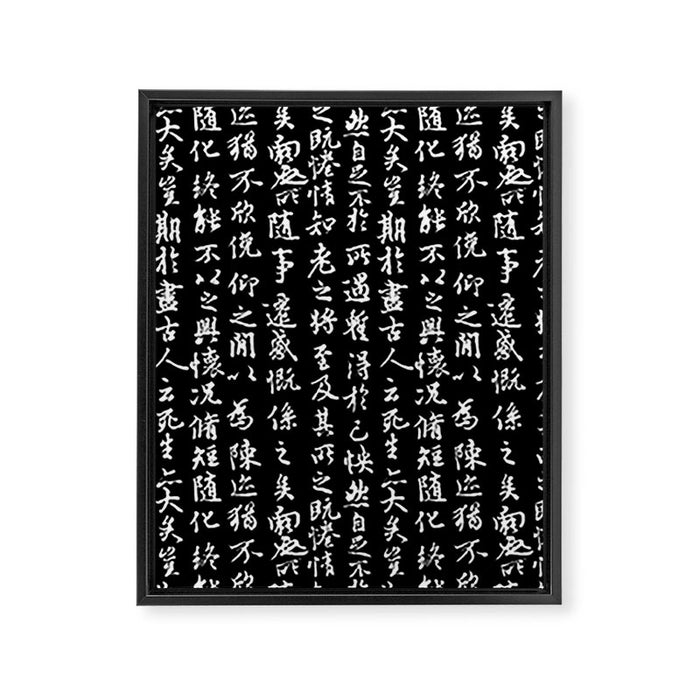 矣向之所隨事遷感慨係之矣向之所
迹猶不欣俛仰之閒以為陳迹猶不欣
隨化終能不以之興懷況脩短隨化終能
亦大矣豈期於盡古人云死生亦大矣豈
然自足不於所遇蹔得於己怏然自足不於
之既惓情知老之將至及其所之既惓情
矣向之所隨事遷感慨係之矣向之所
迹猶不欣俛仰之閒以為陳迹猶不欣
隨化終能不以之興懷況脩短隨化終能
亦大矣豈期於盡古人云死生亦大矣豈